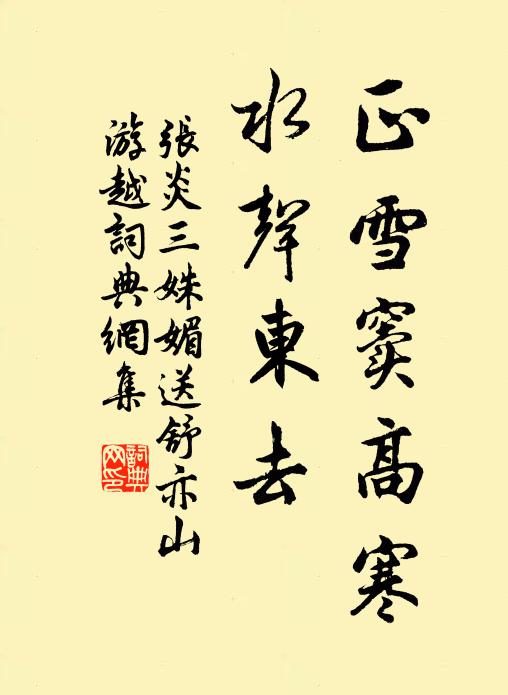 正雪竇高寒
水聲東去
張炎三姝媚送舒亦山
游越詞典網集
詞典网印